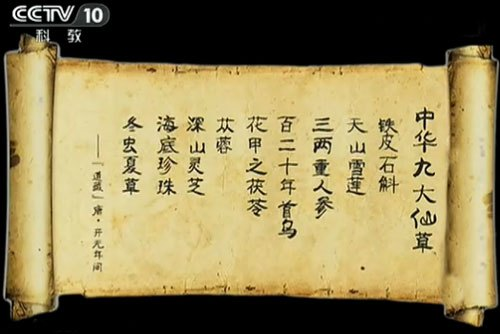 CCTV 10
科教
中华九大仙草
铁皮石斛
天山雪莲
三两重人参
百二十年首乌
花甲之茯苓
苁蓉
深山灵芝
海底珍珠
冬虫夏草
——『道藏』唐·开元年间